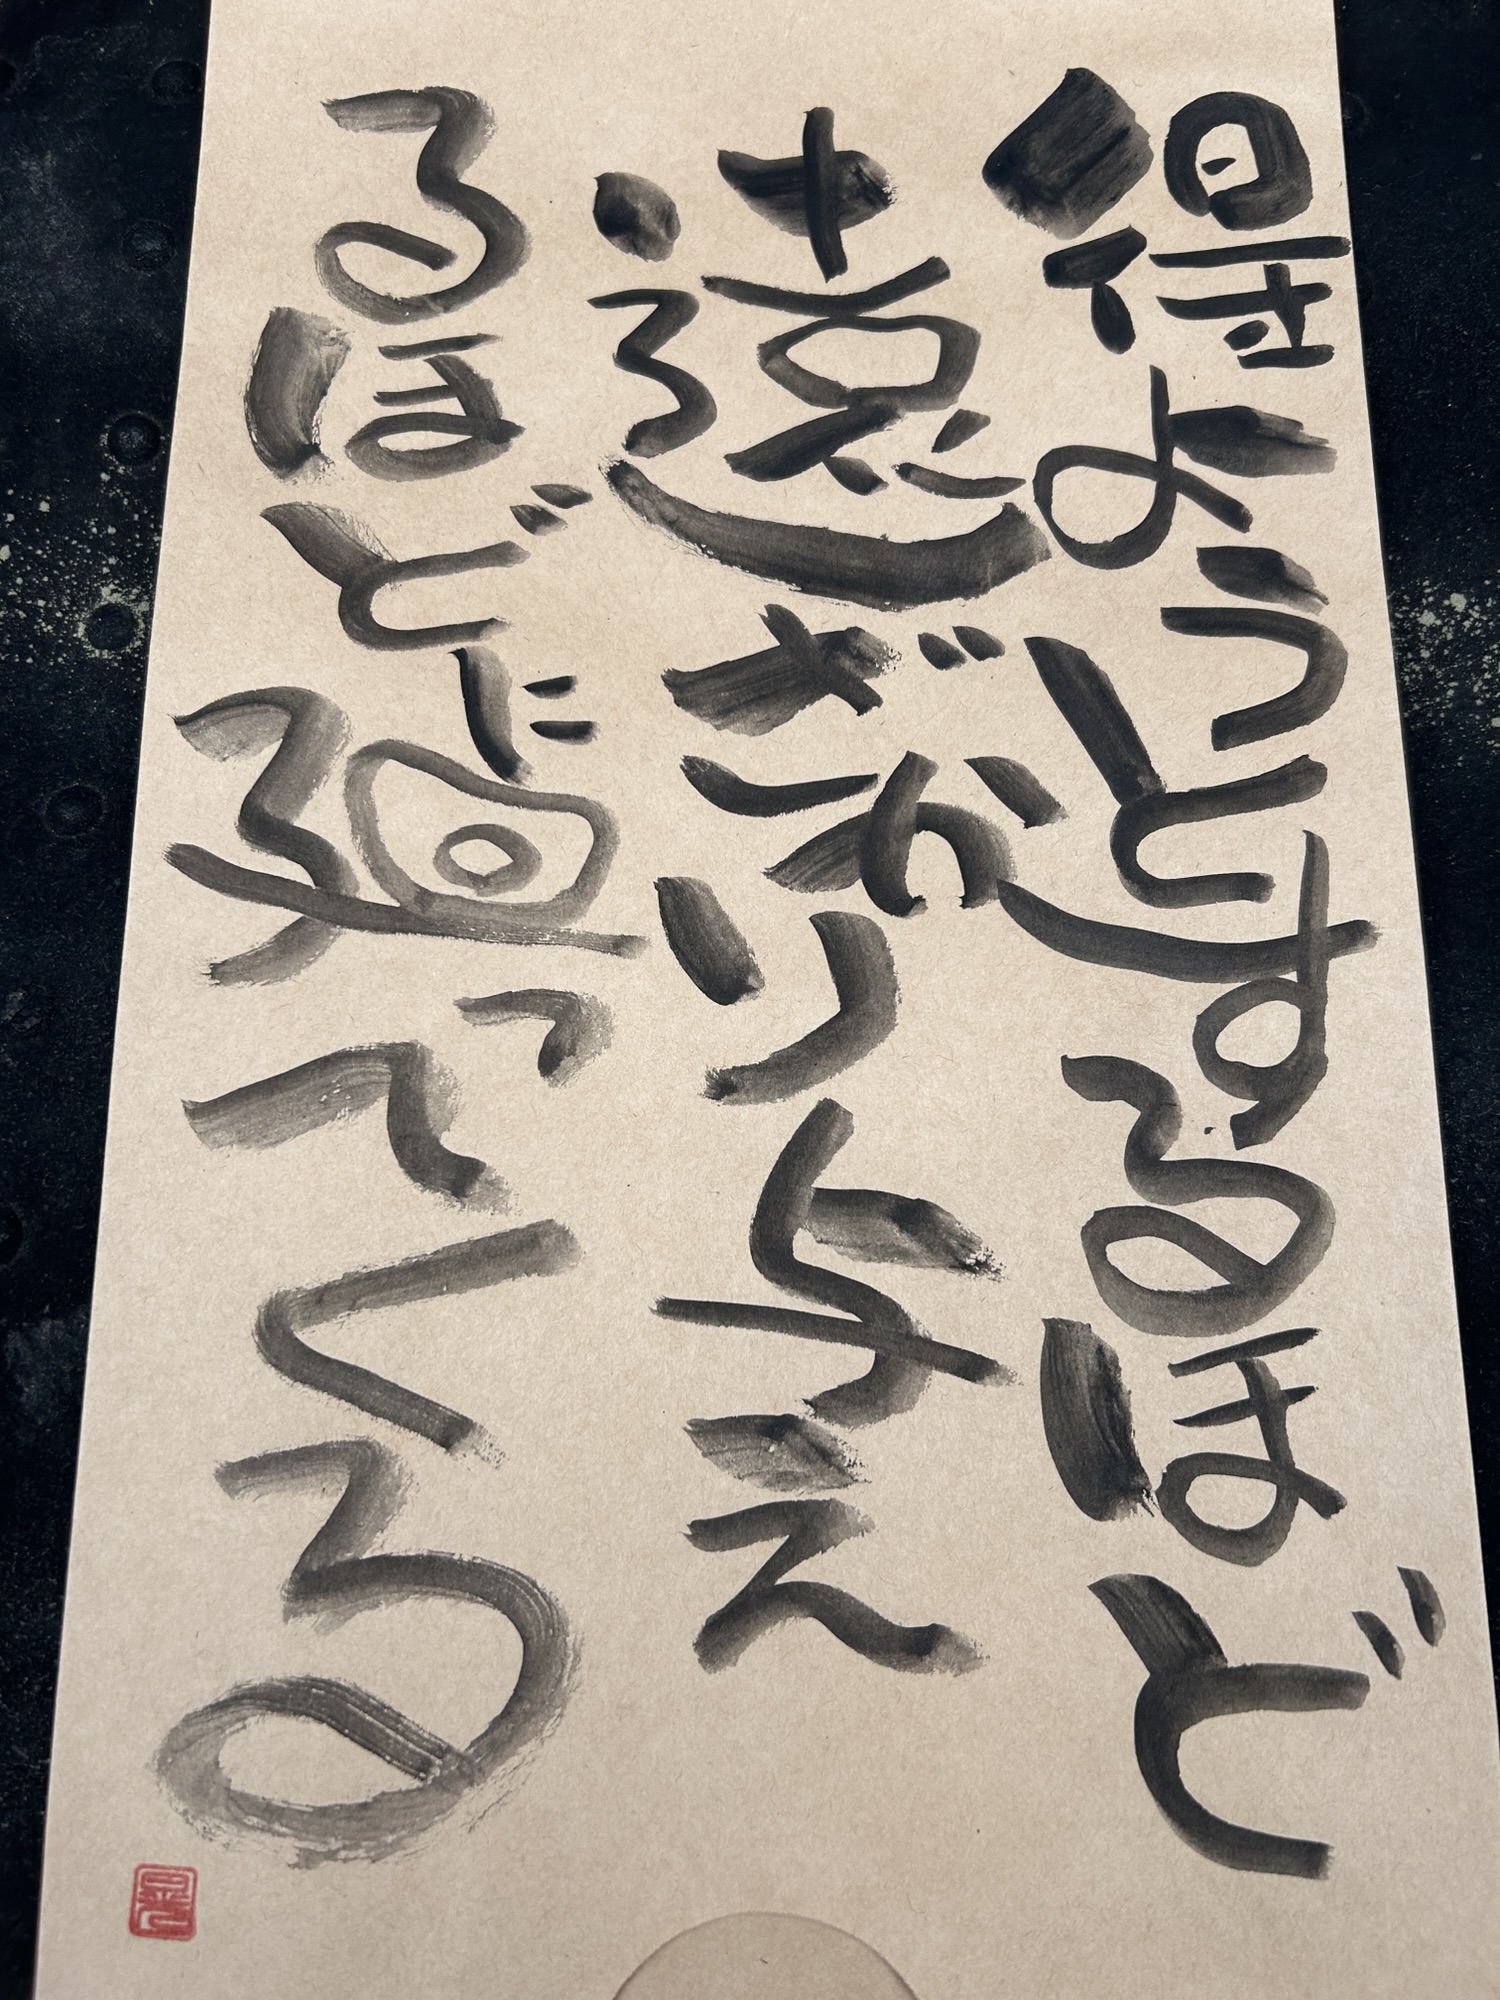 得ようとするほど
遠ざかり与え
るほどに廻ってくる